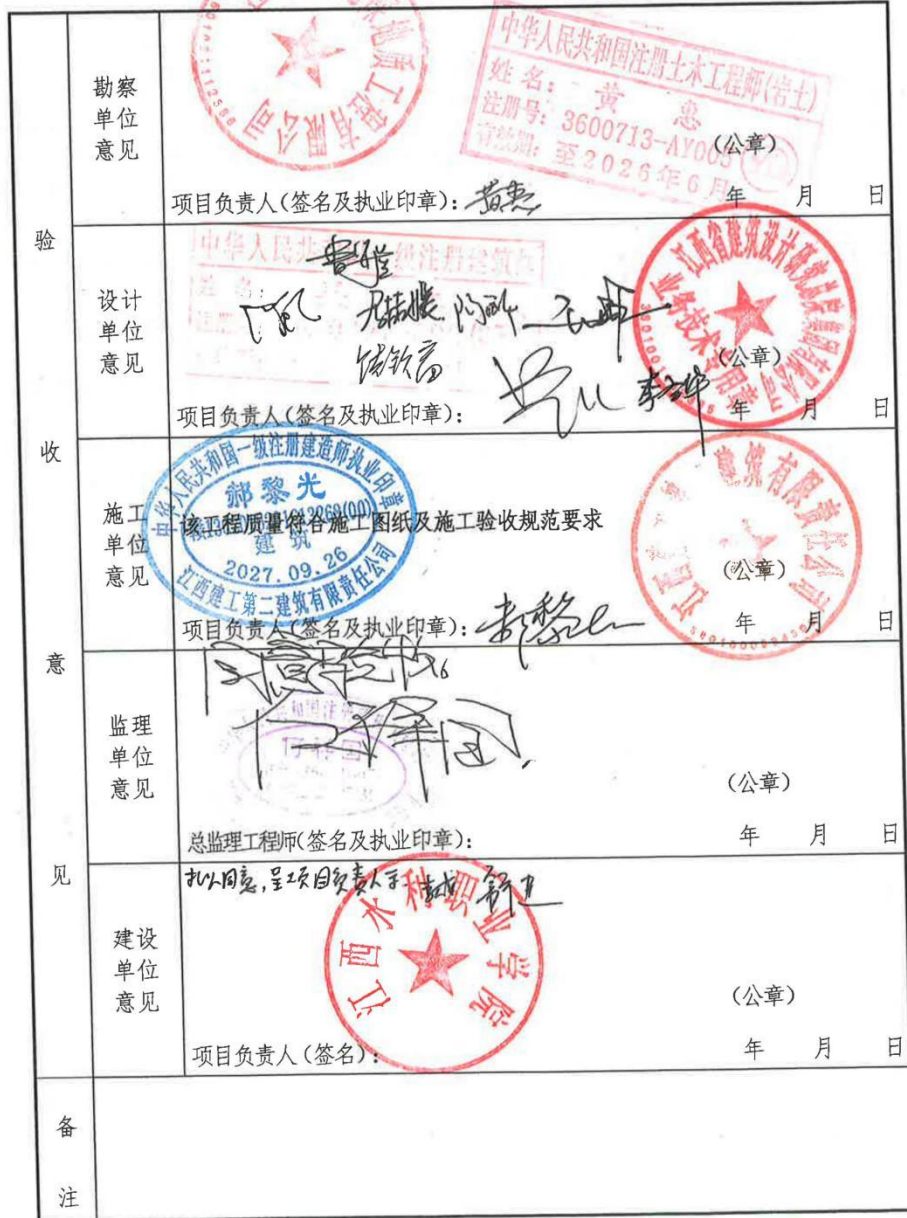 验收意见
勘察单位意见
工程有限公司
中华人民共和国注册土木工程师(岩土)
姓名: 黄惠
注册号: 3600713-AY005
有效期: 至2026年6月
(公章)
项目负责人(签名及执业印章): 黄惠
年 月 日
设计单位意见
江西省建筑设计研究总院集团有限公司
业务技术专用章
(公章)
项目负责人(签名及执业印章):
年 月 日
施工单位意见
中华人民共和国一级注册建造师执业印章
郝黎光
建筑
2027.09.26
江西建工第二建筑有限责任公司
该工程质量符合施工图纸及施工验收规范要求
建筑有限责任公司
(公章)
项目负责人(签名及执业印章):
年 月 日
监理单位意见
(公章)
总监理工程师(签名及执业印章):
年 月 日
建设单位意见
江西水利职业学院
(公章)
项目负责人(签名):
年 月 日
备注